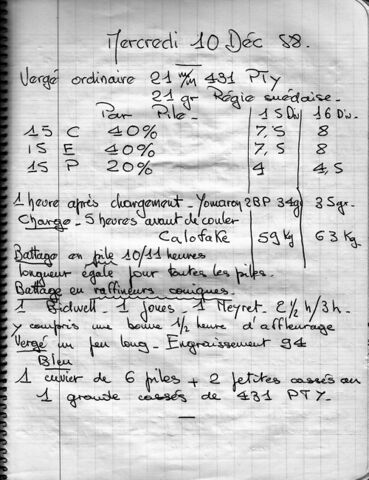 Mercredi 10 Déc 58.
Vergé ordinaire 21 m/m 431 PTy
21 gr Régie suédoise.
Par Pile. 15 Div 16 Div.
15 C 40% 7,5 8
15 E 40% 7,5 8
15 P 20% 4 4,5
1 heure après chargement - 2BP 34g 35gr.
Charge - 5 heures avant de couler
Calofake 59 Kg 63 Kg.
Battage en pile 10/11 heures
longueur égale pour toutes les piles.
Battage en raffineurs coniques.
1 Bidwell - 1 Jones - 1 Neyret - 2 1/2 h/3 h.
y compris une bonne 1/2 heure d'affleurage
Vergé un peu long - Engraissement 94
Bleu
1 cuvier de 6 piles + 2 petites cassés ou
1 grande cassés de 431 PTY.